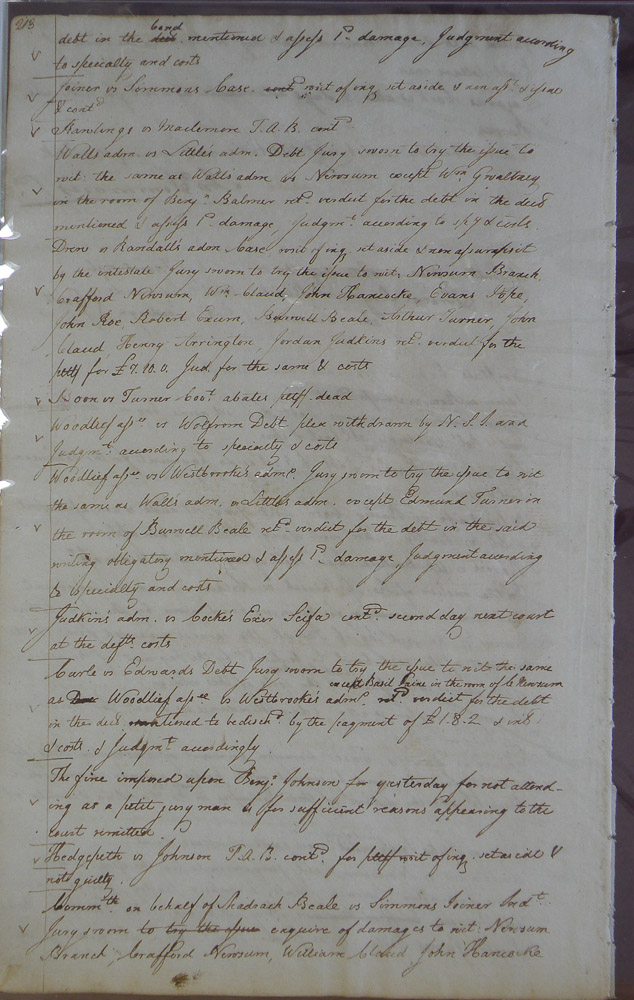 213
debt in the bond mentioned & assess 1d. damage, Judgment according
to specialty and costs
Joiner vs Simmons Case. writ of inq. set aside & non asst. & issue
& contd
Rawlings vs Maclemore T.A.B. contd
Walls adm. vs Little's adm. Debt Jury sworn to try the issue to
wit the same as Walls adm vs Newsum except Wm
in the room of Benja. Balmer retd. verdict for the debt in the decl
mentioned & assess 1d. damage, Judgmt. according to spy & costs.
Drew vs Randall's adm Case writ of inq. set aside & non assumpsit
by the intestate Jury sworn to try the issue to wit, Newsum Branch,
Crafford Newsum, Wm. Claud, John Hancocke, Evans Pope,
John Roe, Robert Exum, Burwell Beale, Arthur Turner, John
Claud Henry Arrington, Jordan Judkins retd. verdict for the
pltff for £7.10.0. Jud. for the same & costs
Boon vs Turner Covt. abates pltff. dead
Woodlief assee vs Wolfrom Debt plea withdrawn by N.S.I. and
Judgmt. according to specialty & costs
Woodlief assee vs Westbrooke's admr. Jury sworn to try the issue to wit
the same as Walls adm. vs Little's adm. except Edmund Turner in
the room of Burwell Beale retd. verdict for the debt in the said
writing obligatory mentioned & assess 1d. damage, Judgment according
to specialty and costs
Judkins's adm. vs Cocke's Exer Scifa contd. second day next court
at the defts. costs
Carle vs Edwards Debt Jury sworn to try the issue to wit the same
except Basil in the room of C. Newsum
as Woodlief assee vs Westbrooke's admr. retd. verdict for the debt
in the decl mentioned to be dischd. by the payment of £1.8.2 & int
& costs. & Judgmt. accordingly.
The fine imposed upon Benja. Johnson for yesterday for not attend-
ing as a petit jury man is for sufficient reasons appearing to the
court remitted.
Hedgpeth vs Johnson T.A.B. contd. for pltff writ of inq. set aside &
not guilty.
Commth. on behalf of Shadrack Beale vs Simmons Joiner Indt.
Jury sworn to try the issue enquire of damages to wit: Newsum
Branch, Crafford Newsum, William Claud John Hancocke